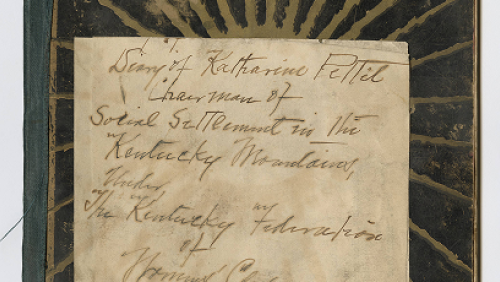 Diary of Katharine Pettit
Chairman of
Social Settlement in the
Kentucky Mountains,
Under
The Kentucky Federation
of